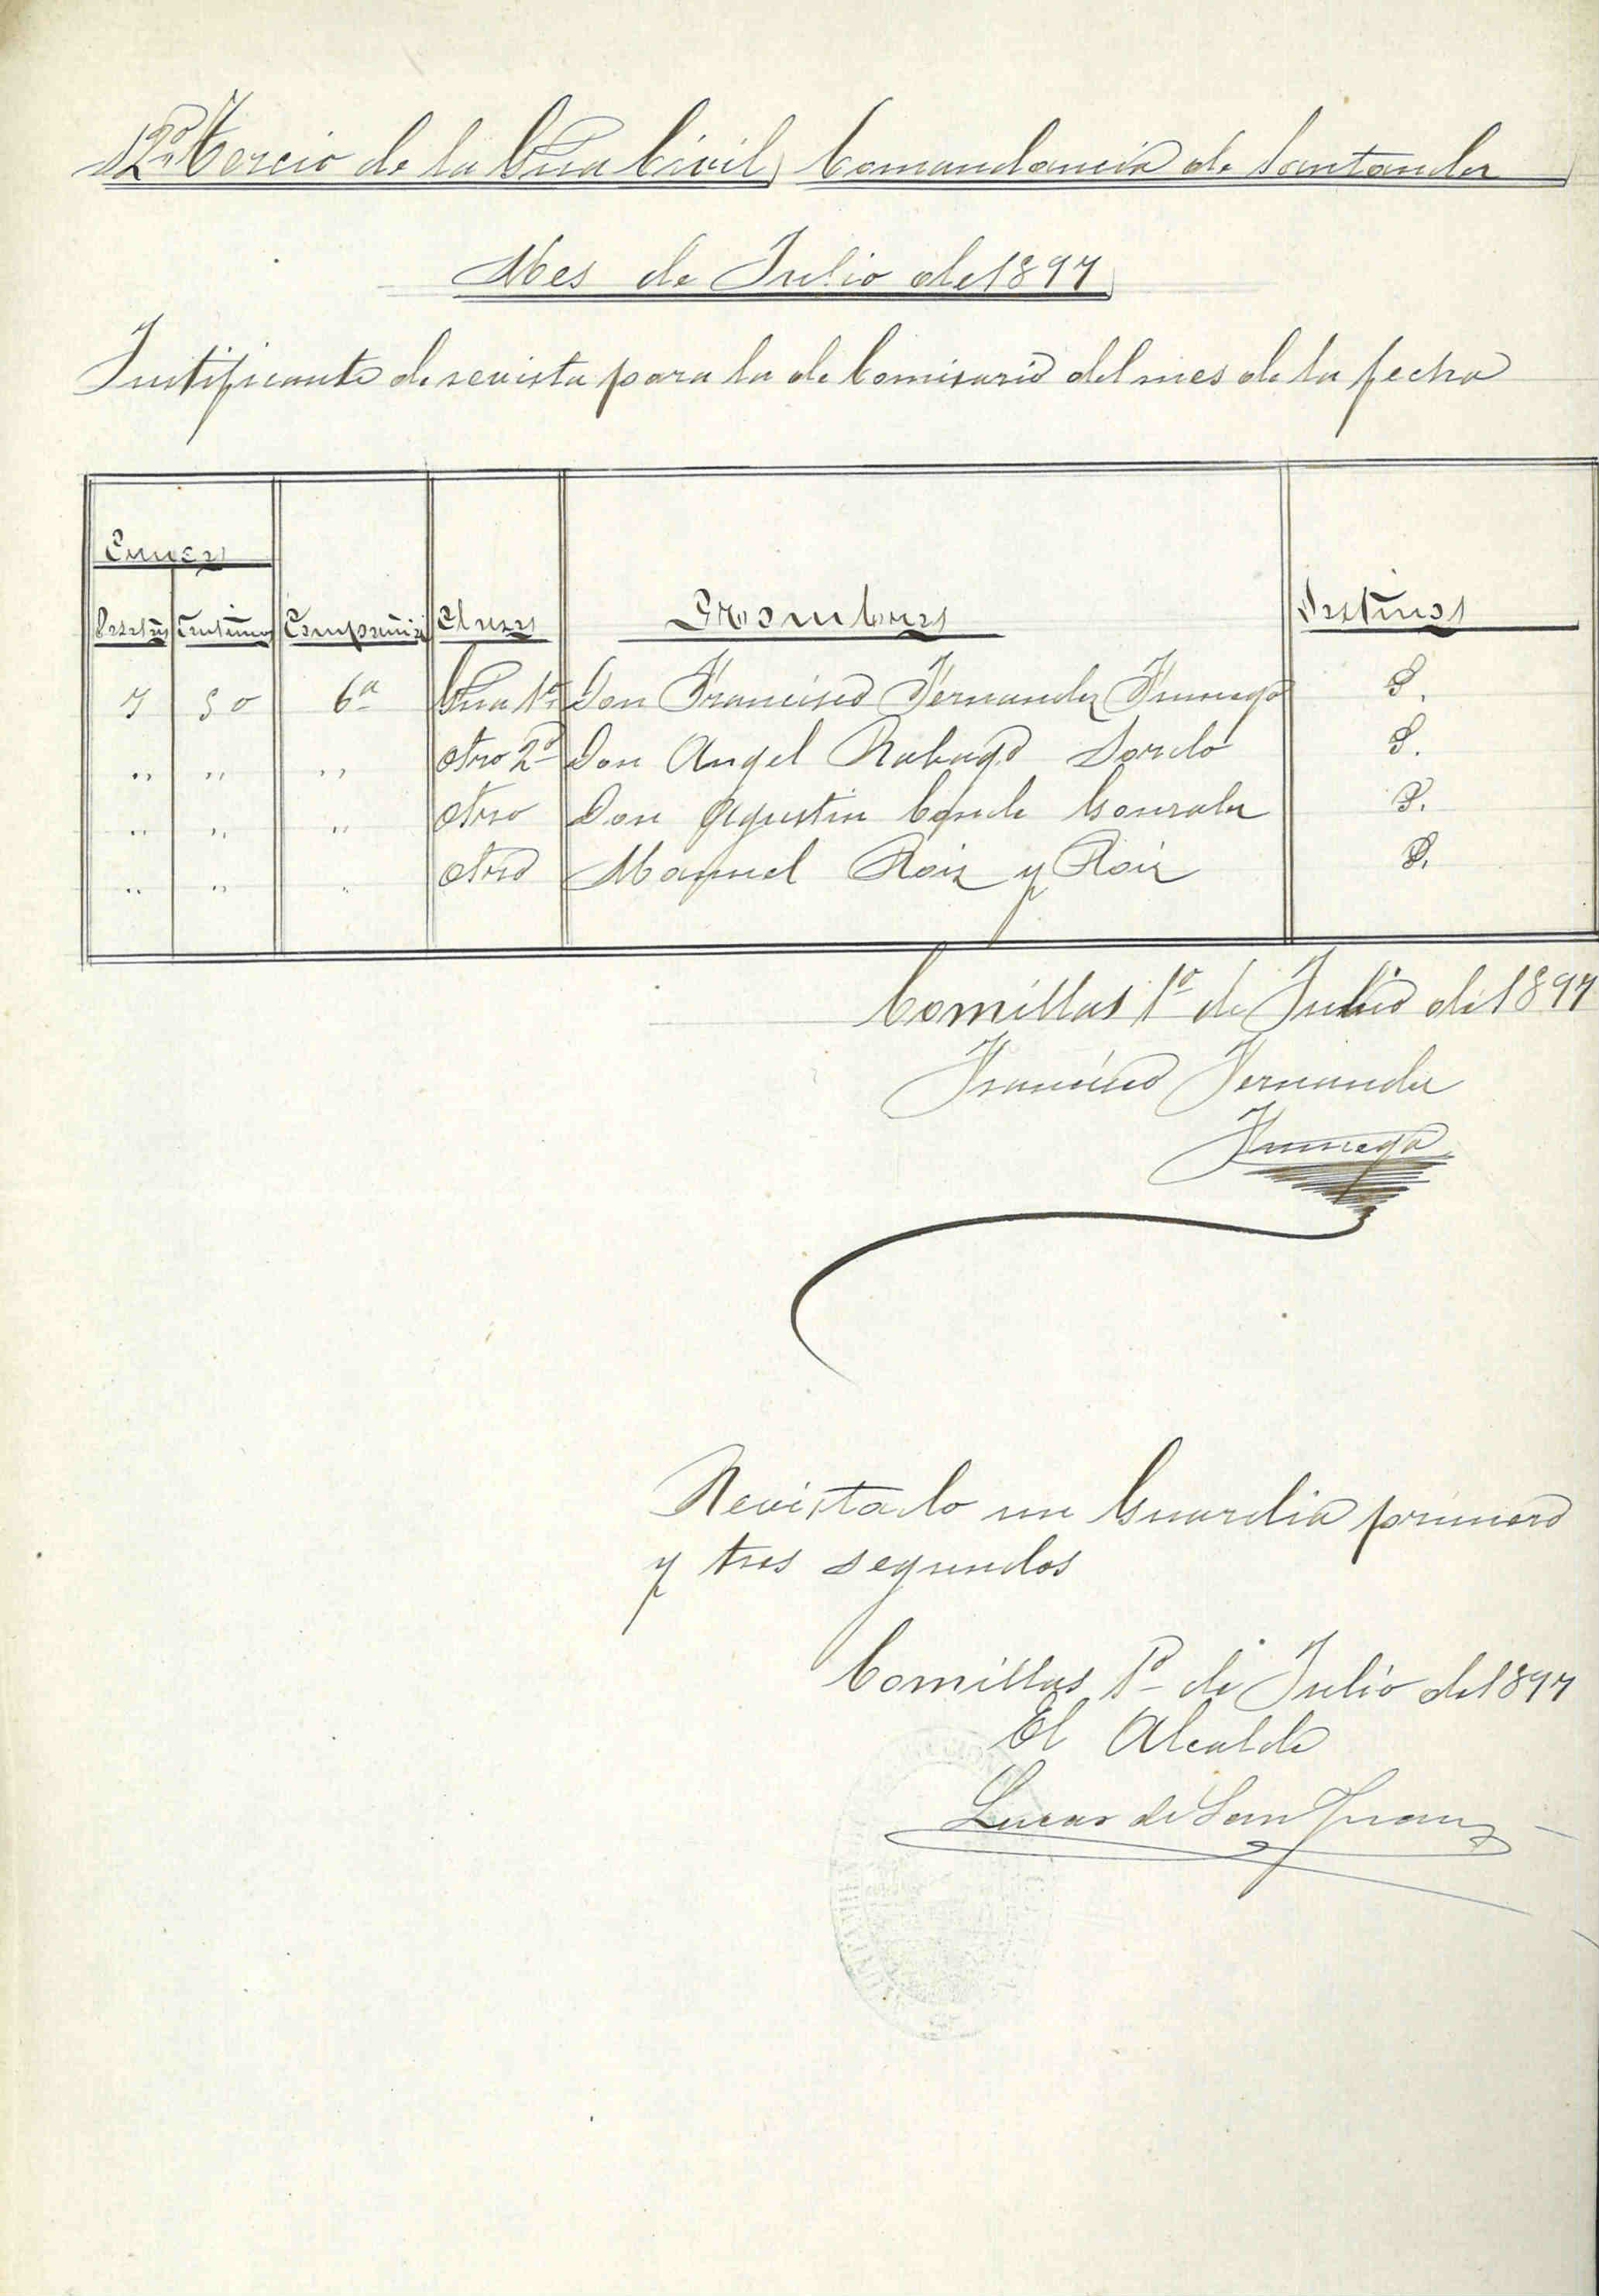 12º Tercio de la Gua Civil Comandancia de Santander
Mes de Julio de 1897
Justificante de revista para la de Comisario del mes de la fecha
Cruces
Pesetas Centimos Compañia Clases Nombres Destinos
7 50 6ª Gua 1º Don Francisco Fernandez P.
" " " Otro 2º Don Angel Rabago Sordo P.
" " " Otro Don Agustin Conde Gonzalez P.
" " " Otro Manuel Roiz y Roiz P.
Comillas 1º de Julio de 1897
Francisco Fernandez
Revistado un Guardia primero
y tres segundos
Comillas 1º de Julio de 1897
El Alcalde
Lucas de San Juan